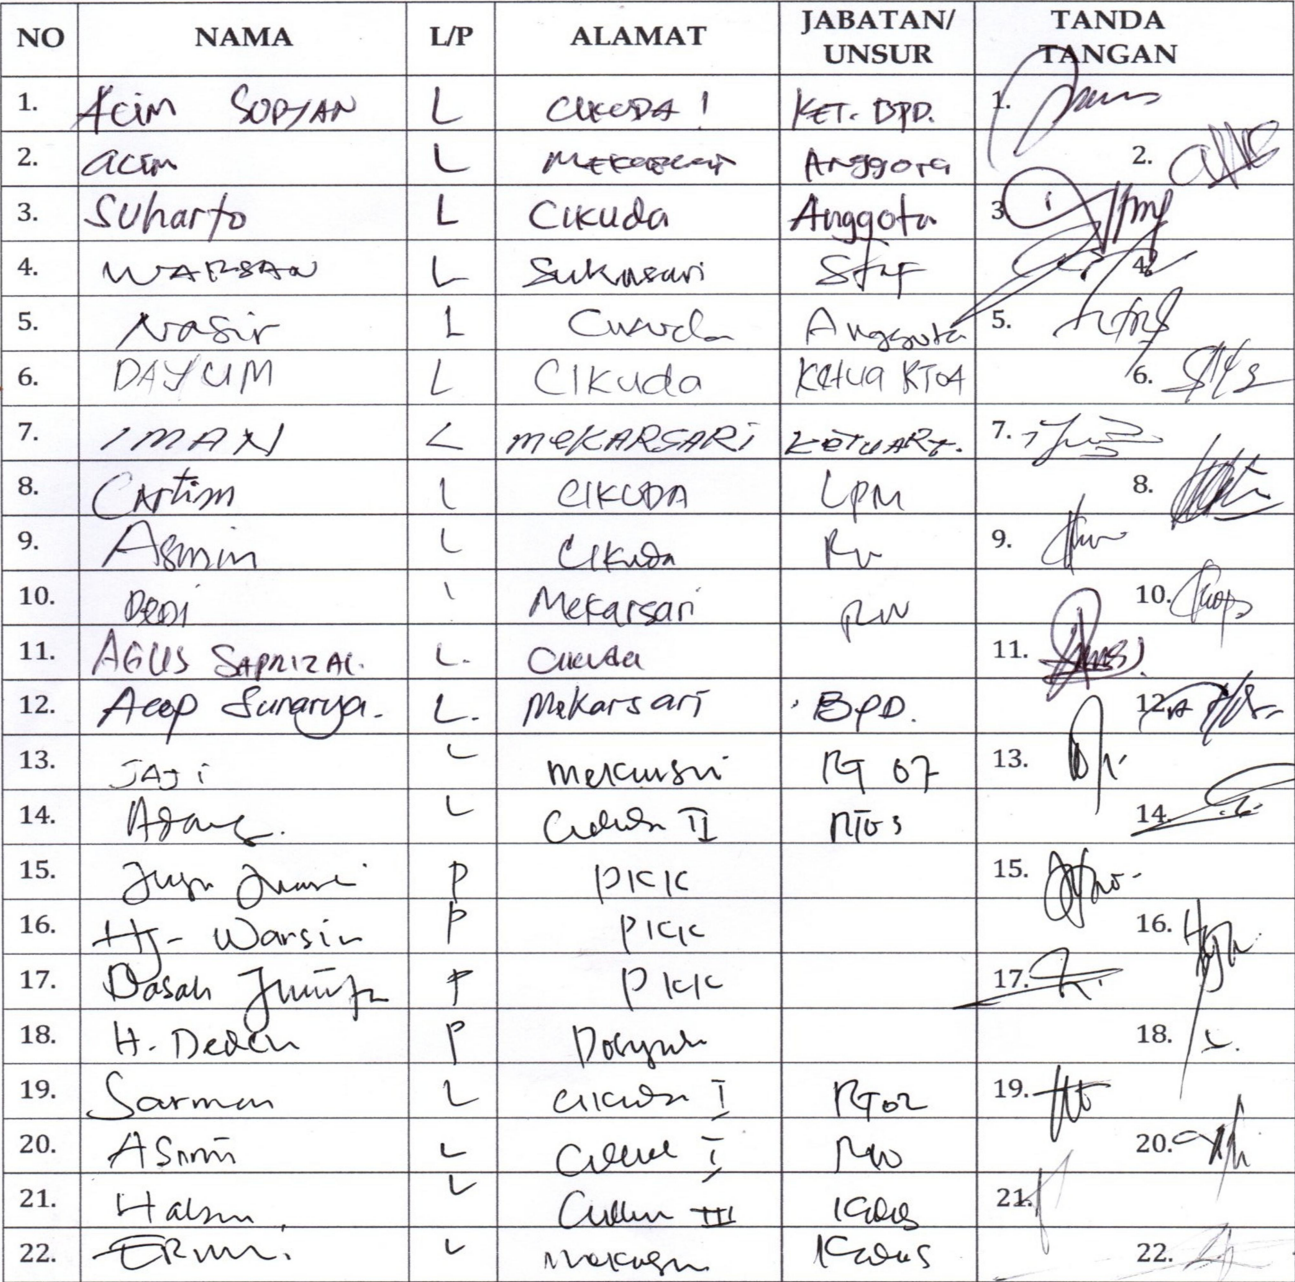 NO NAMA L/P ALAMAT JABATAN/ UNSUR TANDA TANGAN
1. Acim SOPYAN L CIKUDA I KET. BPD. 1.
2. acim L Anggota 2.
3. Suharto L Cikuda Anggota 3
4. WARSAN L Sukasari Staf 4.
5. Nasir L Cikuda Anggota 5.
6. DAYUM L CIKuda Ketua RT04 6.
7. IMAN L MeKARSARi KETUA RT. 7.
8. Cartim L CIKUDA LPM 8.
9. Asmin L CIKuda RW 9.
10. DEDI Mekarsari RW 10.
11. AGUS SAPRIZAL. L. Cikuda 11.
12. Acep Sunarya. L. Mekarsari BPD. 12.
13. JAJi L Mekarsari RT 07 13.
14. L II RT03 14.
15. P PKK 15.
16. Hj- Warsih P PKK 16.
17. Dasah P PKK 17.
18. H. Deden P 18.
19. Sarman L Cikuda I RT02 19.
20. Asmin L I RW 20.
21. L III Kadus 21.
22. L Kadus 22.